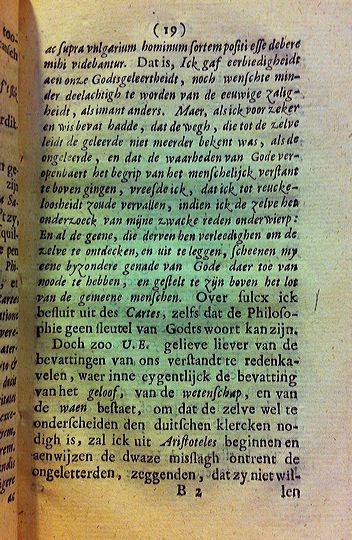 (19)
ac supra vulgarium hominum sortem positi esse debere
mihi videbantur. Dat is, Ick gaf eerbiedigheidt
aen onze Godtsgeleertheidt, noch wenschte min-
der deelachtigh te worden van de eeuwige zalig-
heidt, als imant anders. Maer, als ick voor zeker
en wis bevat hadde, dat de wegh, die tot de zelve
leidt de geleerde niet meerder bekent was, als de
ongeleerde, en dat de waarheden van Gode ver-
openbaert het begrip van het menschelijck verstant
te boven gingen, vreesde ick, dat ick tot reucke-
loosheidt zoude vervallen, indien ick de zelve het
onderzoeck van mijne zwacke reden onderwierp:
En al de geene, die derven hen verleedighen om de
zelve te ontdecken, en uit te leggen, scheenen my
eene byzondere genade van Gode daer toe van
noode te hebben, en gestelt te zijn boven het lot
van de gemeene menschen. Over sulcx ick
besluit uit des Cartes, zelfs dat de Philoso-
phie geen sleutel van Godts woort kan zijn.
Doch zoo U.E. gelieve liever van de
bevattingen van ons verstandt te redenka-
velen, waer inne eygentlijck de bevatting
van het geloof, van de wetenschap, en van
de waen bestaet, om dat de zelve wel te
onderscheiden den duitschen klercken no-
digh is, zal ick uit Aristoteles beginnen en
aenwijzen de dwaze misslagh ontrent de
ongeletterden, zeggenden, dat zy niet wil-
B 2 len